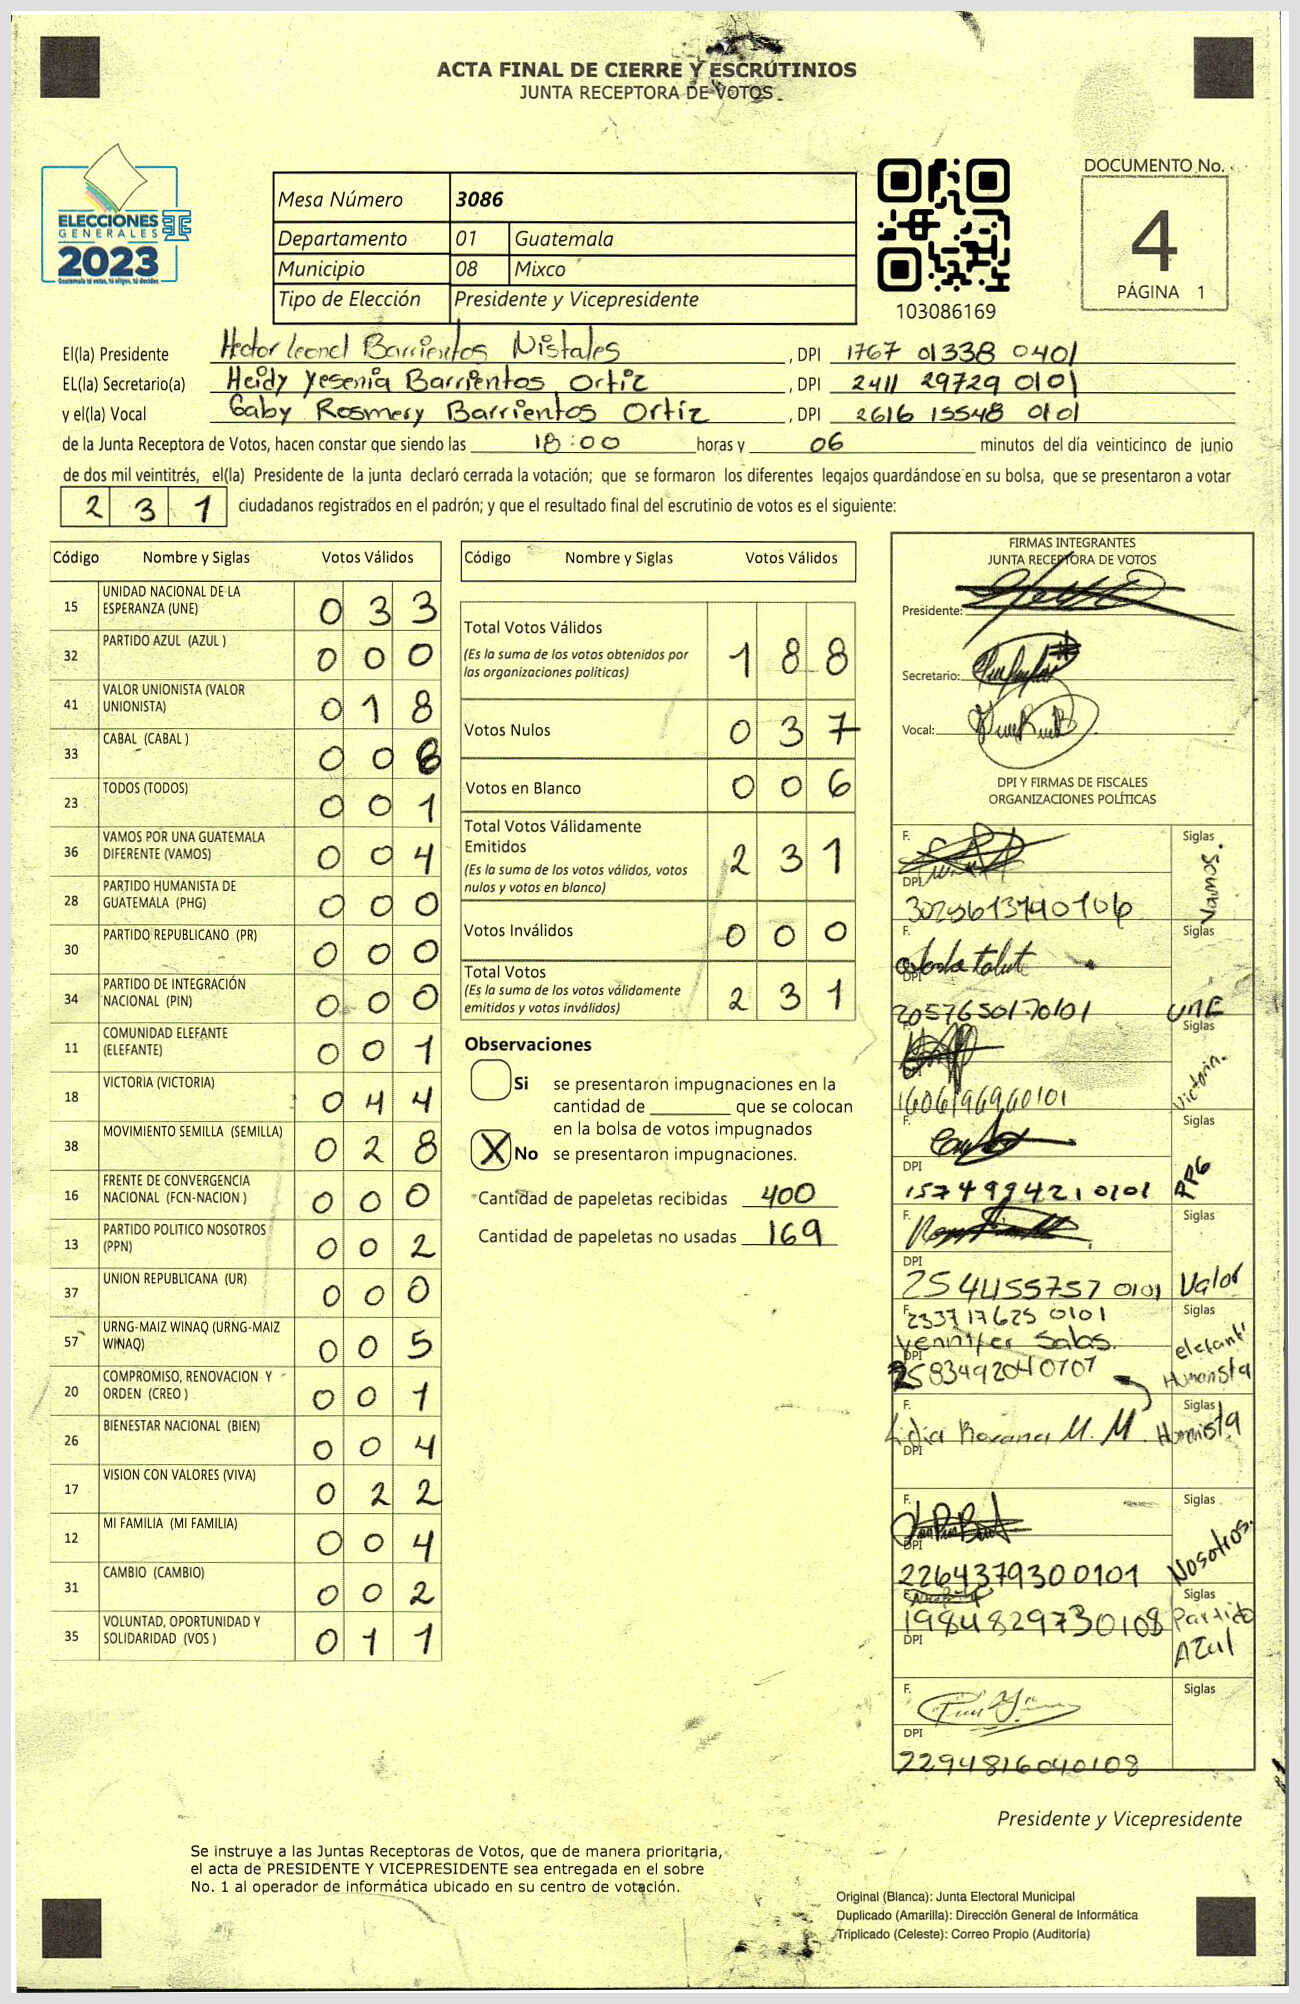 ACTA FINAL DE CIERRE Y ESCRUTINIOS
JUNTA RECEPTORA DE VOTOS
ELECCIONES
GENERALES
2023
Guatemala tú votas, tú eliges, tú decides
Mesa Número 3086
Departamento 01 Guatemala
Municipio 08 Mixco
Tipo de Elección Presidente y Vicepresidente
103086169
DOCUMENTO No.
4
PÁGINA 1
El(la) Presidente Hector Leonel Barrientos Nistales, DPI 1767 01338 0401
EL(la) Secretario(a) Heidy Yesenia Barrientos Ortiz, DPI 2411 29729 0101
y el(la) Vocal Gaby Rosmery Barrientos Ortiz, DPI 2616 15548 0101
de la Junta Receptora de Votos, hacen constar que siendo las 18:00 horas y 06 minutos del día veinticinco de junio
de dos mil veintitrés, el(la) Presidente de la junta declaró cerrada la votación; que se formaron los diferentes legajos guardándose en su bolsa, que se presentaron a votar
231 ciudadanos registrados en el padrón; y que el resultado final del escrutinio de votos es el siguiente:
Código Nombre y Siglas Votos Válidos
15 UNIDAD NACIONAL DE LA ESPERANZA (UNE) 033
32 PARTIDO AZUL (AZUL ) 000
41 VALOR UNIONISTA (VALOR UNIONISTA) 018
33 CABAL (CABAL ) 008
23 TODOS (TODOS) 001
36 VAMOS POR UNA GUATEMALA DIFERENTE (VAMOS) 004
28 PARTIDO HUMANISTA DE GUATEMALA (PHG) 000
30 PARTIDO REPUBLICANO (PR) 000
34 PARTIDO DE INTEGRACIÓN NACIONAL (PIN) 000
11 COMUNIDAD ELEFANTE (ELEFANTE) 001
18 VICTORIA (VICTORIA) 044
38 MOVIMIENTO SEMILLA (SEMILLA) 028
16 FRENTE DE CONVERGENCIA NACIONAL (FCN-NACION ) 000
13 PARTIDO POLITICO NOSOTROS (PPN) 002
37 UNION REPUBLICANA (UR) 000
57 URNG-MAIZ WINAQ (URNG-MAIZ WINAQ) 005
20 COMPROMISO, RENOVACION Y ORDEN (CREO ) 001
26 BIENESTAR NACIONAL (BIEN) 004
17 VISION CON VALORES (VIVA) 022
12 MI FAMILIA (MI FAMILIA) 004
31 CAMBIO (CAMBIO) 002
35 VOLUNTAD, OPORTUNIDAD Y SOLIDARIDAD (VOS ) 011
Código Nombre y Siglas Votos Válidos
Total Votos Válidos 188
(Es la suma de los votos obtenidos por
las organizaciones políticas)
Votos Nulos 037
Votos en Blanco 006
Total Votos Válidamente
Emitidos 231
(Es la suma de los votos válidos, votos
nulos y votos en blanco)
Votos Inválidos 000
Total Votos 231
(Es la suma de los votos válidamente
emitidos y votos inválidos)
Observaciones
Si se presentaron impugnaciones en la
cantidad de ________ que se colocan
en la bolsa de votos impugnados
X No se presentaron impugnaciones.
Cantidad de papeletas recibidas 400
Cantidad de papeletas no usadas 169
FIRMAS INTEGRANTES
JUNTA RECEPTORA DE VOTOS
Presidente:
Secretario:
Vocal:
DPI Y FIRMAS DE FISCALES
ORGANIZACIONES POLÍTICAS
F. Siglas Vamos.
DPI
F. Siglas
DPI 2057650170101 UNE
F. Siglas Victoria.
DPI 1606196960101
F. Siglas
DPI 1574994210101 PPG
F. Siglas
DPI 2544557570101 Valor
F. 2337176250101 Siglas
Yennifer Salas. elefante
DPI 2583492040707 Humanista
F. Siglas
Lidia Roxana M. M. Humanista
DPI
F. Siglas
DPI 2264379300101 Nosotros.
F. Siglas
1984829730108 Partido
DPI Azul
F. Siglas
DPI 2294816040108
Presidente y Vicepresidente
Se instruye a las Juntas Receptoras de Votos, que de manera prioritaria,
el acta de PRESIDENTE Y VICEPRESIDENTE sea entregada en el sobre
No. 1 al operador de informática ubicado en su centro de votación.
Original (Blanca): Junta Electoral Municipal
Duplicado (Amarilla): Dirección General de Informática
Triplicado (Celeste): Correo Propio (Auditoría)